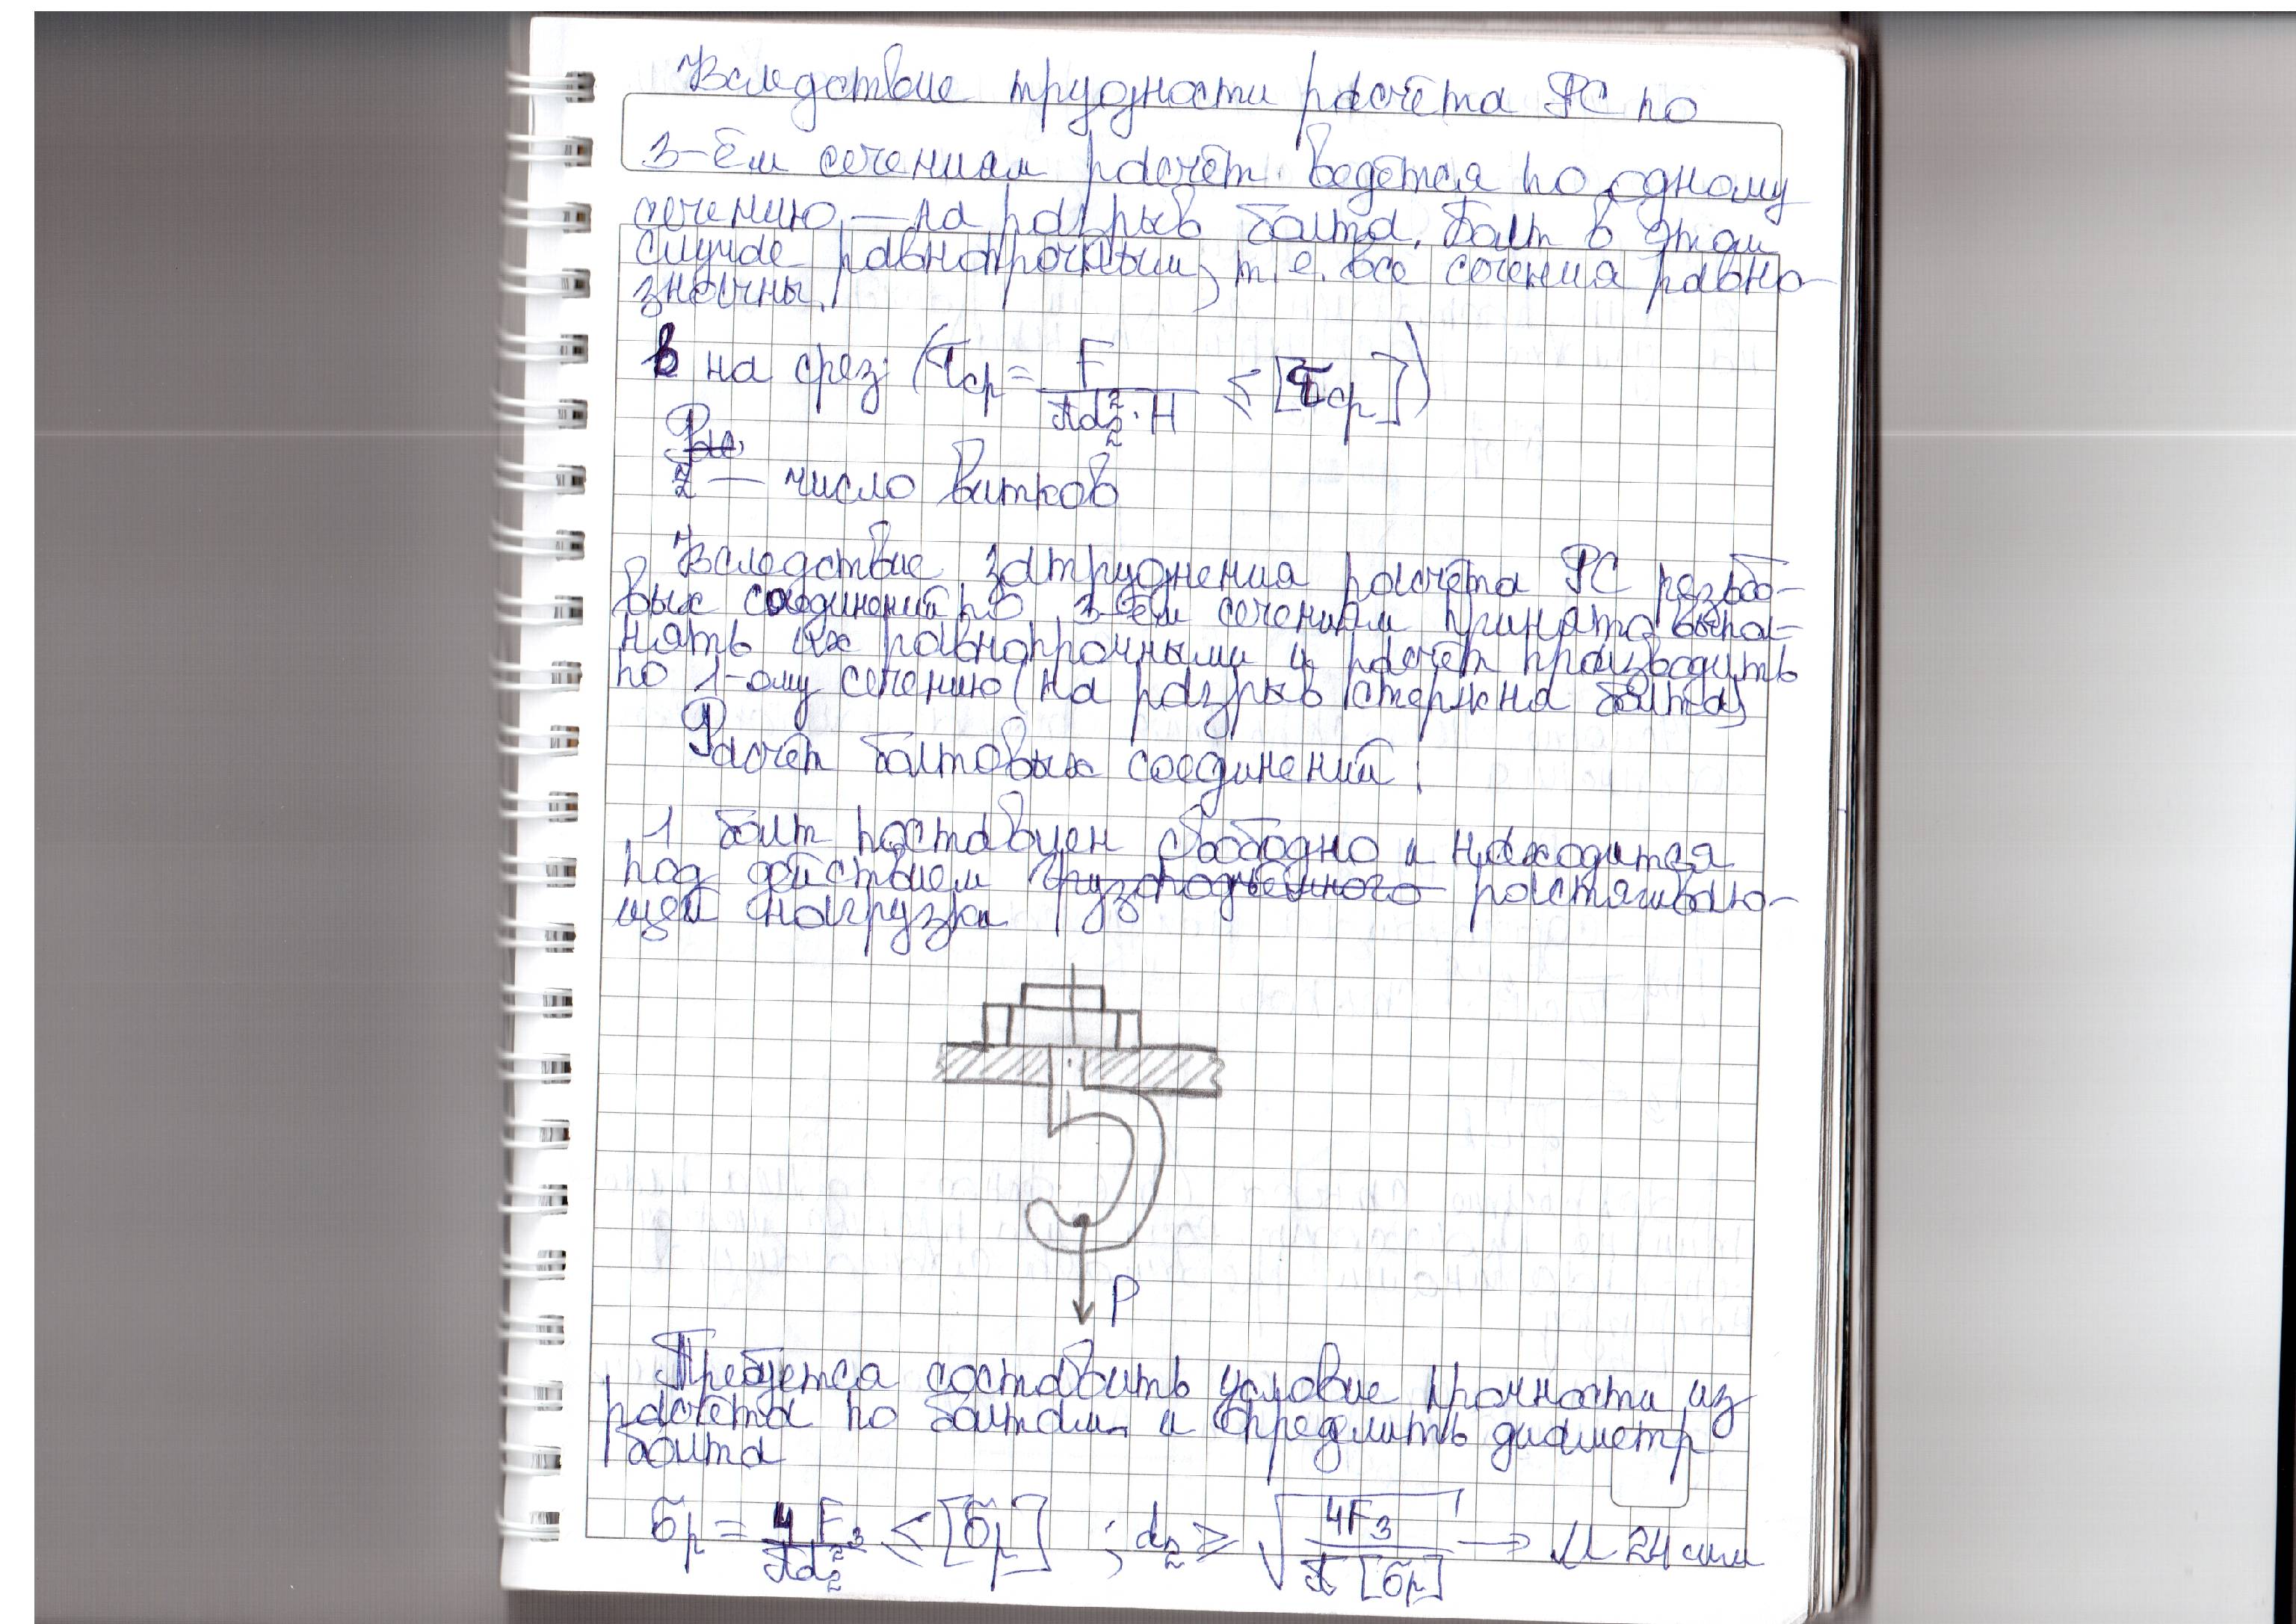 Вследствие трудности расчёта РС по
3-ём сечениям расчёт ведётся по одному
сечению — на разрыв болта. Болт в этом
случае равнопрочным, т.е. все сечения равно-
значны.
в на срез: (τср = F / πd₂² · H ≤ [τср])
Рас
z — число витков
Вследствие затруднения расчёта РС резьбо-
вых соединений по 3-ём сечениям принято выпол-
нять их равнопрочными и расчёт производить
по 1-ому сечению (на разрыв стержня болта)
Расчёт болтовых соединений:
1 болт поставлен свободно и находится
под действием грузоподъёмного растягиваю-
щей нагрузки
P
Требуется составить условие прочности из
расчёта по болтам и определить диаметр
болта
σр = 4F₃ / πd₂² ≤ [σр] ; d₂ ≥ √(4F₃ / π[σр]) → М 24 мм